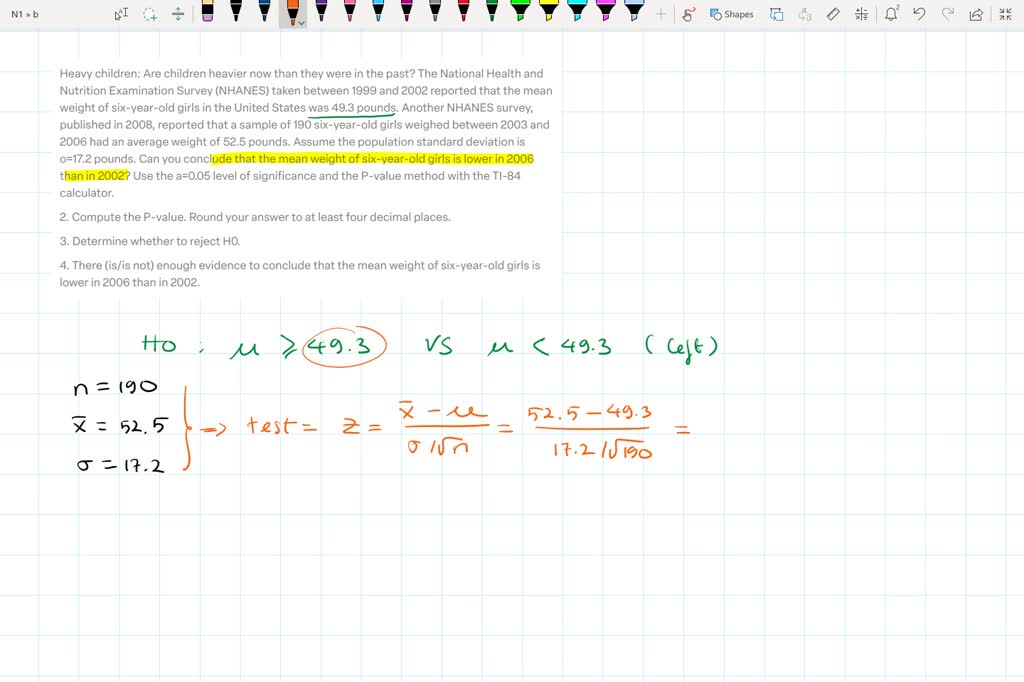 N1 » b
Shapes
2
Heavy children: Are children heavier now than they were in the past? The National Health and
Nutrition Examination Survey (NHANES) taken between 1999 and 2002 reported that the mean
weight of six-year-old girls in the United States was 49.3 pounds. Another NHANES survey,
published in 2008, reported that a sample of 190 six-year-old girls weighed between 2003 and
2006 had an average weight of 52.5 pounds. Assume the population standard deviation is
o=17.2 pounds. Can you conclude that the mean weight of six-year-old girls is lower in 2006
than in 2002? Use the a=0.05 level of significance and the P-value method with the TI-84
calculator.
2. Compute the P-value. Round your answer to at least four decimal places.
3. Determine whether to reject H0.
4. There (is/is not) enough evidence to conclude that the mean weight of six-year-old girls is
lower in 2006 than in 2002.
H0 : μ ≥ 49.3 VS μ < 49.3 (left)
n = 190
x̄ = 52.5
σ = 17.2
⇒ test = z = (x̄ - μ) / (σ/√n) = (52.5 - 49.3) / (17.2/√190) =